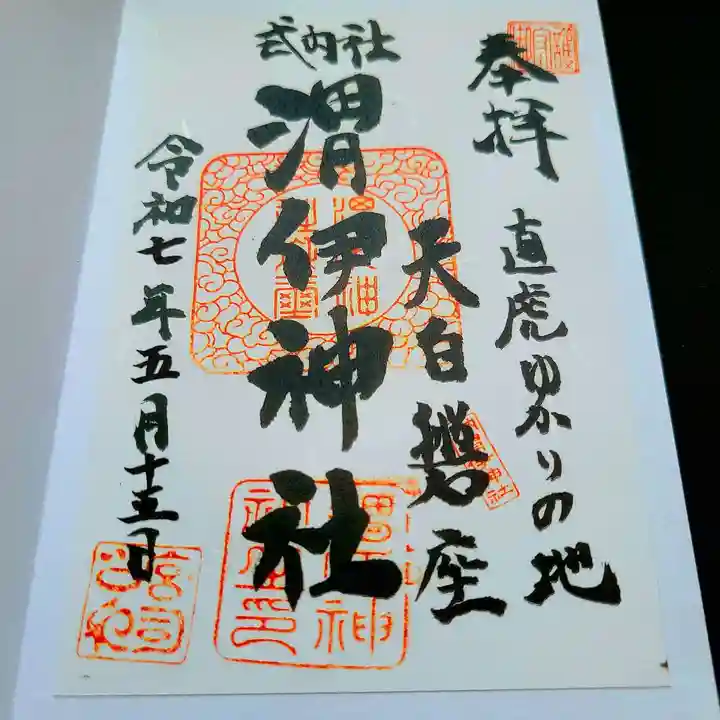 奉拝
直虎ゆかりの地
天白磐座
式内社
渭伊神社
令和七年五月十五日
宮司之印